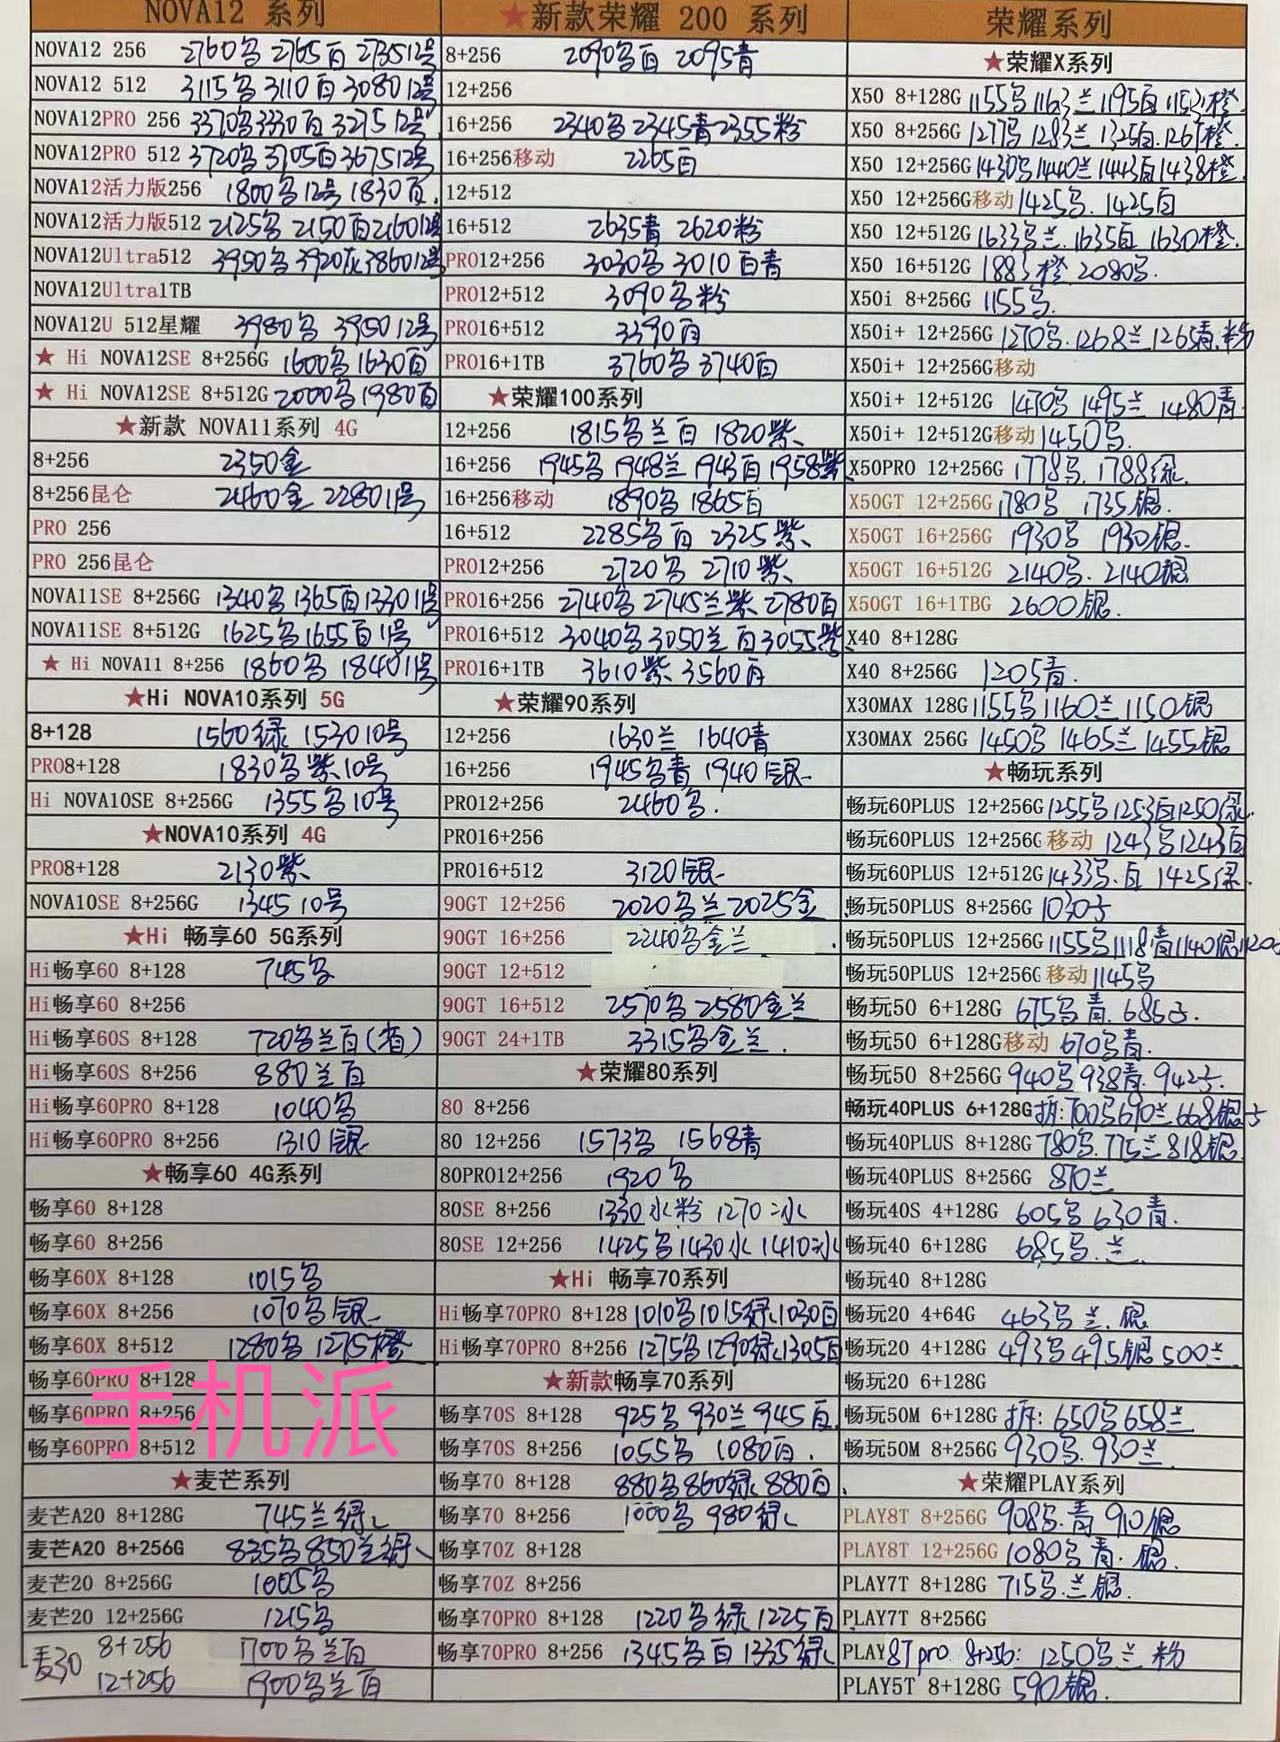 NOVA12 系列
NOVA12 256 2760乌 2765百 2735 12号
NOVA12 512 3115乌 3110百 3080 12号
NOVA12PRO 256 3370乌 3330百 3275 12号
NOVA12PRO 512 3720乌 3705百 3675 12号
NOVA12活力版256 1800乌 12号 1830百.
NOVA12活力版512 2125乌 2150百 2160 12号
NOVA12Ultra512 3950乌 3920灰 3860 12号
NOVA12Ultra1TB
NOVA12U 512星耀 3980乌 3950 12号
★ Hi NOVA12SE 8+256G 1600乌 1630百
★ Hi NOVA12SE 8+512G 2000乌 1980百
★新款 NOVA11系列 4G
8+256 2350金
8+256昆仑 2460金 2280 11号
PRO 256
PRO 256昆仑
NOVA11SE 8+256G 1340乌 1365百 1330 11号
NOVA11SE 8+512G 1625乌 1655百 11号
★ Hi NOVA11 8+256 1860乌 1840 11号
★Hi NOVA10系列 5G
8+128 1560绿 1530 10号
PRO8+128 1830乌紫 10号
Hi NOVA10SE 8+256G 1355乌 10号
★NOVA10系列 4G
PRO8+128 2130紫
NOVA10SE 8+256G 1345 10号
★Hi 畅享60 5G系列
Hi畅享60 8+128 745乌
Hi畅享60 8+256
Hi畅享60S 8+128 720乌兰百(省)
Hi畅享60S 8+256 880兰百
Hi畅享60PRO 8+128 1040乌
Hi畅享60PRO 8+256 1310银
★畅享60 4G系列
畅享60 8+128
畅享60 8+256
畅享60X 8+128 1015乌
畅享60X 8+256 1070乌银
畅享60X 8+512 1280乌 1275橙
畅享60PRO 8+128
畅享60PRO 8+256
畅享60PRO 8+512
手机派
★麦芒系列
麦芒A20 8+128G 745兰绿
麦芒A20 8+256G 835乌 850兰绿
麦芒20 8+256G 1005乌
麦芒20 12+256G 1215乌
麦30 8+256 1700乌兰百
12+256 1900乌兰百
★新款荣耀 200 系列
8+256 2090乌百 2095青
12+256
16+256 2340乌 2345青 2355粉
16+256移动 2265百
12+512
16+512 2635青 2620粉
PRO12+256 3030乌 3010百青
PRO12+512 3090乌粉
PRO16+512 3390百
PRO16+1TB 3760乌 3740百
★荣耀100系列
12+256 1815乌兰百 1820紫
16+256 1945乌 1948兰 1943百 1958紫
16+256移动 1890乌 1865百
16+512 2285乌百 2325紫
PRO12+256 2720乌 2710紫
PRO16+256 2740乌 2745兰紫 2780百
PRO16+512 3040乌 3050兰百 3055紫
PRO16+1TB 3610紫 3560百
★荣耀90系列
12+256 1630兰 1640青
16+256 1945乌青 1940银
PRO12+256 2460乌.
PRO16+256
PRO16+512 3120银
90GT 12+256 2020乌兰 2025金
90GT 16+256 2240乌金兰
90GT 12+512
90GT 16+512 2570乌 2580金兰
90GT 24+1TB 3315乌金兰.
★荣耀80系列
80 8+256
80 12+256 1573乌 1568青
80PRO12+256 1920乌
80SE 8+256 1330水粉 1270冰
80SE 12+256 1425乌 1430水 1410冰
★Hi 畅享70系列
Hi畅享70PRO 8+128 1010乌 1015绿 1030百
Hi畅享70PRO 8+256 1275乌 1290绿 1305百
★新款畅享70系列
畅享70S 8+128 925乌 930兰 945百.
畅享70S 8+256 1055乌 1080百.
畅享70 8+128 880乌 860绿 880百
畅享70 8+256 1000乌 980绿
畅享70Z 8+128
畅享70Z 8+256
畅享70PRO 8+128 1220乌绿 1225百
畅享70PRO 8+256 1345乌百 1335绿
荣耀系列
★荣耀X系列
X50 8+128G 1155乌 1163兰 1195百 橙
X50 8+256G 1277乌 1283兰 1325百 橙
X50 12+256G 1430乌 1440兰 1443百 1438橙
X50 12+256G移动 1425乌. 1425百
X50 12+512G 1633乌兰. 1635百 1630橙.
X50 16+512G 橙 2080乌.
X50i 8+256G 1155乌.
X50i+ 12+256G 1270乌. 1268兰 1265青.粉
X50i+ 12+256G移动
X50i+ 12+512G 乌 1495兰 1480青
X50i+ 12+512G移动 1450乌.
X50PRO 12+256G 1778乌. 1788绿.
X50GT 12+256G 1780乌 1735银.
X50GT 16+256G 1930乌 1930银.
X50GT 16+512G 2140乌. 2140银
X50GT 16+1TBG 2600银.
X40 8+128G
X40 8+256G 1205青.
X30MAX 128G 1155乌 1160兰 1150银
X30MAX 256G 1450乌 1465兰 1455银
★畅玩系列
畅玩60PLUS 12+256G 1255乌 1253百 1250绿.
畅玩60PLUS 12+256G 移动 1243乌 1243百
畅玩60PLUS 12+512G 1433乌.百 1425绿.
畅玩50PLUS 8+256G 1030子
畅玩50PLUS 12+256G 1155乌 1118青 1140银 1120子
畅玩50PLUS 12+256G 移动 1145乌
畅玩50 6+128G 675乌青. 685子.
畅玩50 6+128G移动 670乌青.
畅玩50 8+256G 940乌 938青. 942子.
畅玩40PLUS 6+128G 拆:700乌 690兰 668银子
畅玩40PLUS 8+128G 780乌. 775兰 818银
畅玩40PLUS 8+256G 870兰
畅玩40S 4+128G 605乌 630青.
畅玩40 6+128G 685乌.兰
畅玩40 8+128G
畅玩20 4+64G 463乌兰.银
畅玩20 4+128G 493乌 495银 500兰
畅玩20 6+128G
畅玩50M 6+128G 拆: 650乌 658兰
畅玩50M 8+256G 930乌. 930兰
★荣耀PLAY系列
PLAY8T 8+256G 908乌.青 910银
PLAY8T 12+256G 1080乌青. 银.
PLAY7T 8+128G 715乌.兰银.
PLAY7T 8+256G
PLAY8Tpro 8+256: 1250乌兰 粉
PLAY5T 8+128G 590银.